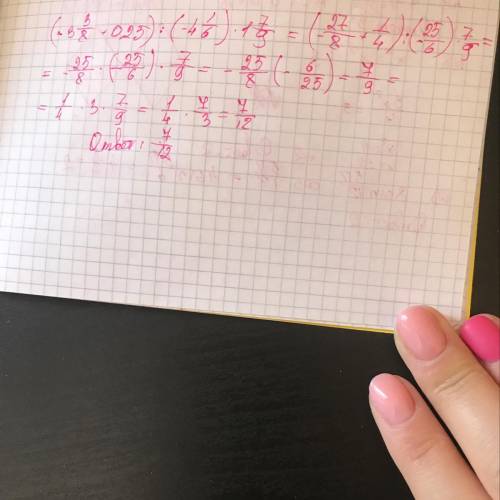 (-3 3/8 + 0,25) : (-4 1/6) · 1 7/9 = (-27/8 + 1/4) : (-25/6) · 7/9 =
= -25/8 · (-25/6) · 7/9 = -25/8 (-6/25) = 7/9 =
= 1/4 · 3 · 7/9 = 1/4 · 7/3 = 7/12
Ответ: 7/12